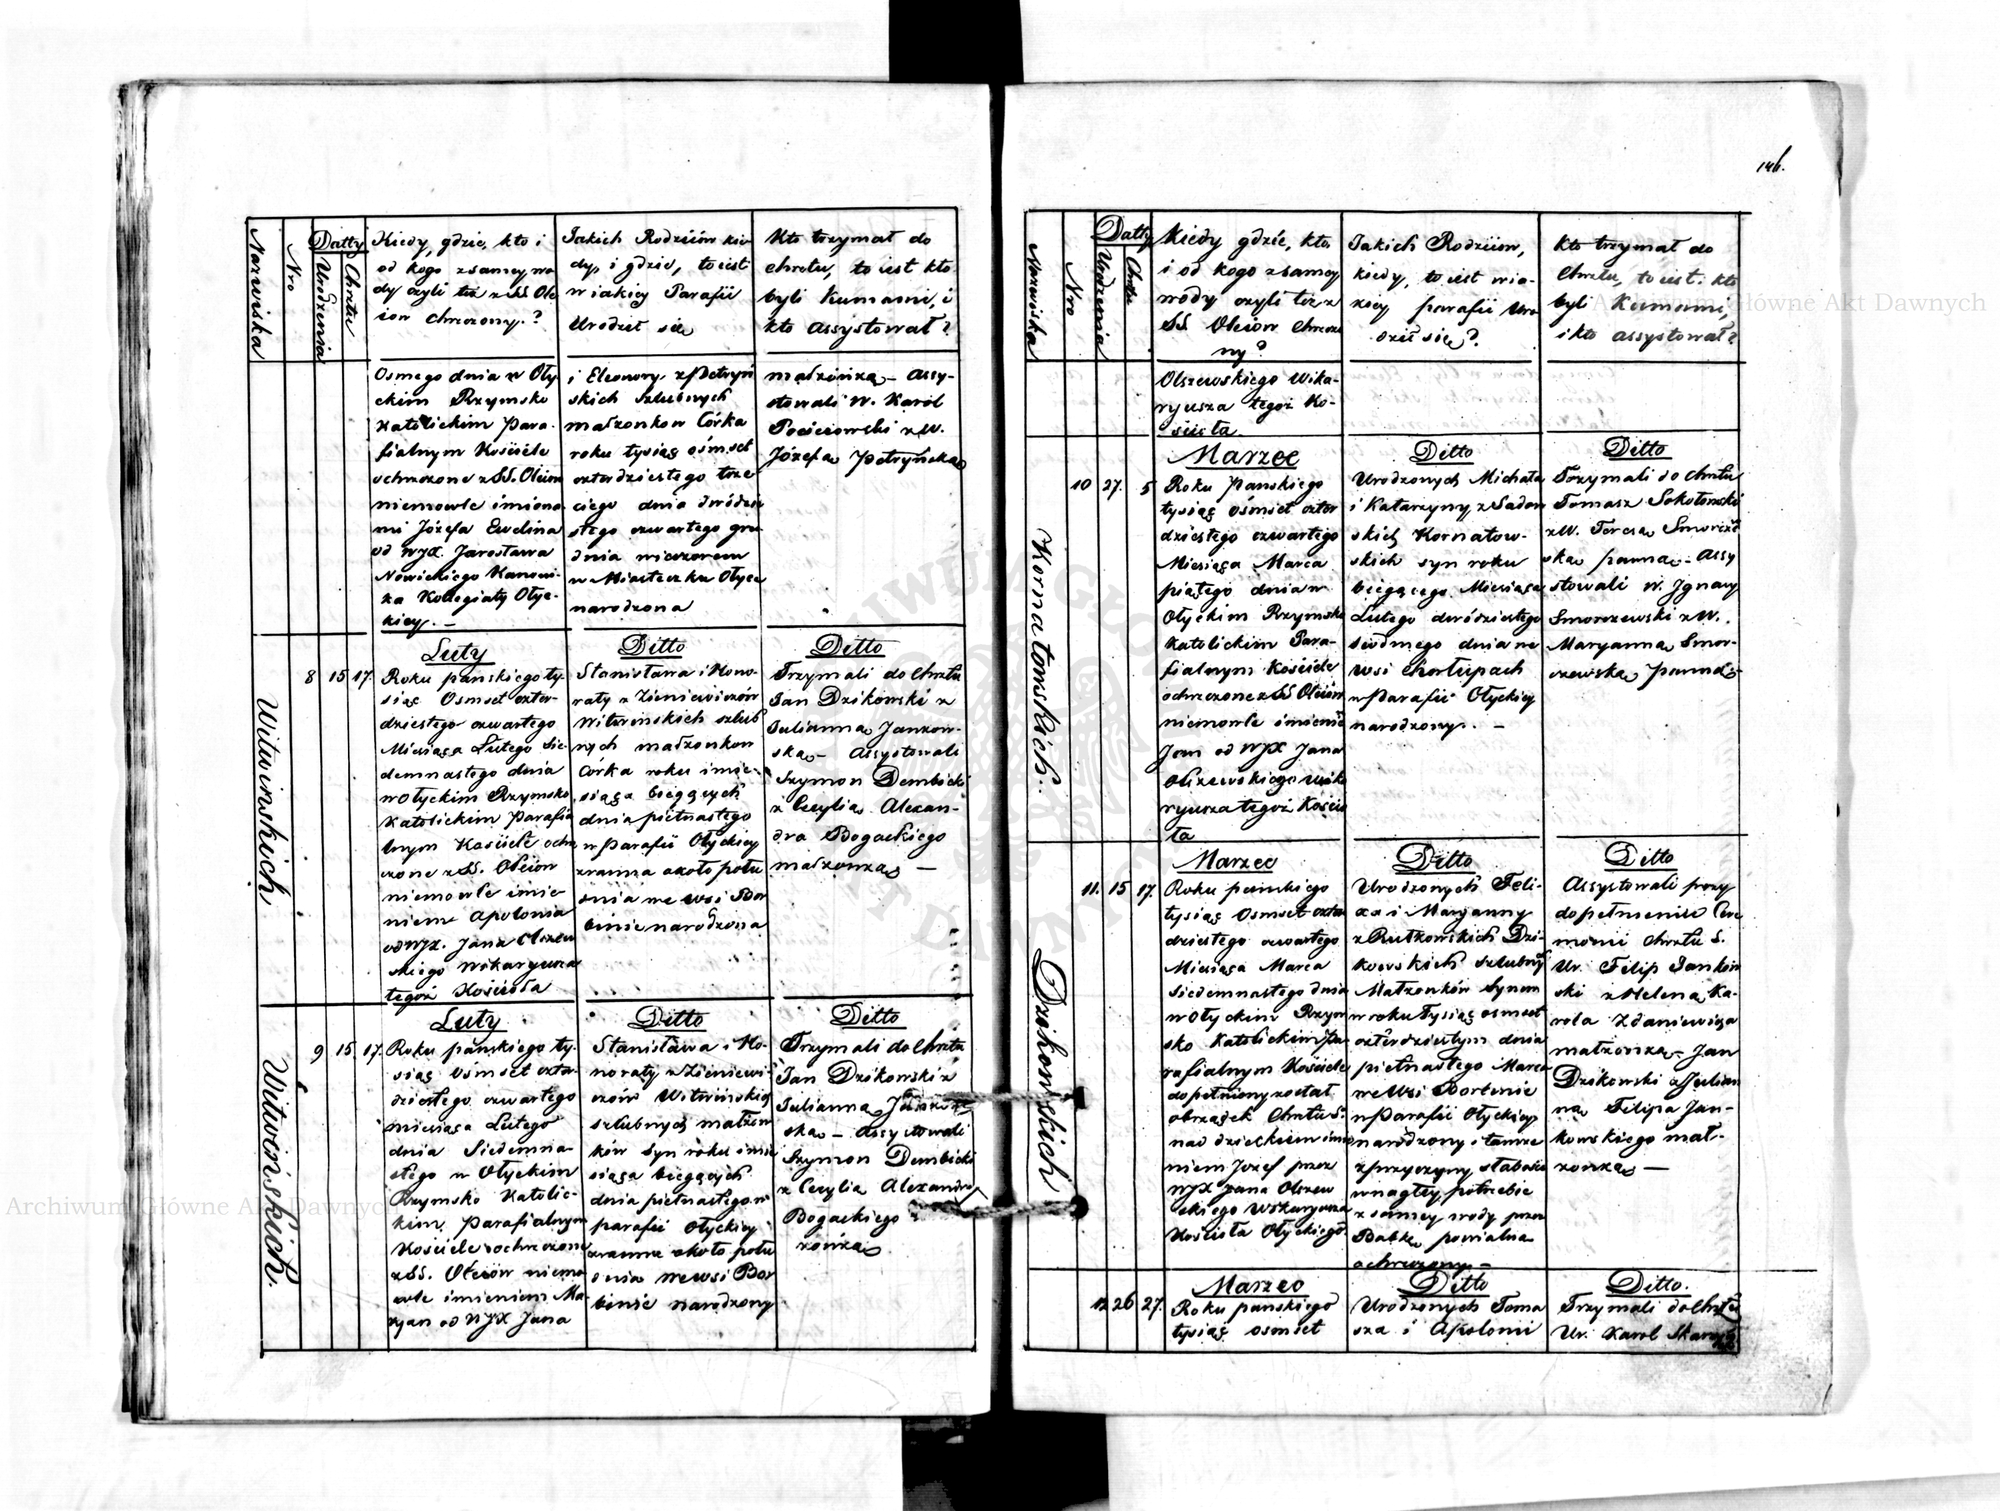 146.
Nazwiska
Nro
Datty
Urodzenia
Chrztu
Kiedy, gdzie, kto i
od kogo z samey wo
dy czyli też z SS. Ole
iow chrzczony.?
Jakich Rodziców kie
dy, i gdzie, to iest
w iakiey Parafii
Urodził się
Kto trzymał do
chrztu, to iest kto
byli Kumami, i
kto assystował?
Osmego dnia w Oły
ckim Rzymsko
Katolickim Para-
fialnym Kościele
ochrzczone z SS. Oleiow
niemowle imiona
mi Józefa Ewelina
od WJX. Jarosława
Nowickiego Kanoni-
ka Kollegiaty Ołyc-
kiey. —
i Eleonory z Petryń
skich szlubnych
małżonkow Córka
roku tysiąc ośmset
czterdziestego trze
ciego dnia dwódzie
stego czwartego gru
dnia wieczorem
w Miasteczku Ołyce
narodzona
małżonka – Assy-
stowali W. Karol
Pocieiowski z W.
Józefa Petryńska
Witwinskich
8
15
17
Luty
Roku pańskiego ty-
siąc Osmset czter-
dziestego czwartego
Miesiąca Lutego sie-
demnastego dnia
w Ołyckim Rzymsko
Katolickim Parafia
lnym Kościele ochrz
czone z SS. Oleiow
niemowle imie-
niem Apolonia
od WJX. Jana Olszew
skiego Wikaryusza
tegoż Kościoła
Ditto
Stanisława i Hono-
raty z Zieniewiczów
Witwińskich szlub
nych małżonkow
Córka roku i mie-
siąca bieżących
dnia piętnastego
w Parafii Ołyckiey
zrana około połu
dnia we wsi Bor
binie narodzona
Ditto
Trzymali do Chrztu
Jan Dzikowski z
Julianna Jankow-
ska – Assystowali
Szymon Dembicki
z Cecylia Alexan-
dra Bogackiego
małżonka —
Witwińskich.
9
15
17
Luty
Roku pańskiego ty-
siąc osmset czter-
dziestego czwartego
miesiąca Lutego
dnia Siedemna-
stego w Ołyckim
Rzymsko Katolic-
kim Parafialnym
Kościele ochrzczone
z SS. Oleiow niemo
wle imieniem Ma-
ryan od WJX Jana
Ditto
Stanisława i Ho-
noraty z Zieniewi-
czów Witwińskich
szlubnych małżon
ków Syn roku i mie
siąca bieżących
dnia piętnastego w
parafii Ołyckiey
zrana około połu
dnia we wsi Bor
binie narodzony
Ditto
Trzymali do Chrztu
Jan Dzikowski z
Julianna Jankow
ska – Assystowali
Szymon Dembicki
z Cecylia Alexandra
Bogackiego
żonka
Nazwiska
Nro
Datty
Urodzenia
Chrztu
Kiedy gdzie, kto,
i od kogo z samey
wody czyli też z
SS Oleiow chrzczo
ny?
Jakich Rodziców,
kiedy, to iest w ia-
kiey parafii Uro
dził się?
Kto trzymał do
Chrztu, to iest: kto
byli Kumami,
i kto assystował?
Olszewskiego Wika-
ryusza tegoż Ko-
ścioła.
Kornatowskich.
10
27.
5
Marzec
Roku Pańskiego
tysiąc ośmset czter
dziestego czwartego
Miesiąca Marca
piątego dnia w
Ołyckim Rzymsko
Katolickim Para-
fialnym Kościele
ochrzczone z SS Oleiów
niemowle imieniem
Jan od WJX Jana
Olszewskiego wika
ryusza tegoż Kościo
ła
Ditto
Urodzonych Michała
i Katarzyny z Sadow
skich Kornatow-
skich syn roku
bieżącego Miesiąca
Lutego dwódziestego
siedmego dnia we
wsi Chorłupach
w Parafii Ołyckiey
narodzony. —
Ditto
Trzymali do Chrztu
Tomasz Sokołowski
z W. Teresa Smorcze
ska panna – Assy
stowali W. Ignacy
Smorczewski z W.
Maryanna Smor-
czewska Panna
Dzikowskich
11.
15
17.
Marzec
Roku pańskiego
tysiąc Osmset czter
dziestego czwartego
Miesiąca Marca
Siedemnastego dnia
w Ołyckim Rzym
sko Katolickim Pa
rafialnym Kościele
dopełniony został
obrządek Chrztu S.
nad dzieckiem imie
niem Jozef przez
WJX Jana Olszew
skiego Wikaryusza
Kościoła Ołyckiego.
Ditto
Urodzonych Feli-
xa i Maryanny
z Rutkowskich Dzi-
kowskich szlubnych
Małżonków Synem
w roku Tysiąc osmset
czterdziestym dnia
piętnastego Marca
we Wsi Borbinie
w Parafii Ołyckiey
narodzony i tamże
z przyczyny słabości
w nagłey potrzebie
z samey wody przez
Babkę powialna
ochrzczony –
Ditto
Assystowali przy
dopełnieniu Cere
monii Chrztu S.
Ur. Filip Jankow
ski z Helena Ka-
rola Zdaniewicza
małżonka – Jan
Dzikowski z Julian
na Filipa Jan-
kowskiego mał-
żonka —
12
26
27.
Marzec
Roku pańskiego
tysiąc osmset
Ditto
Urodzonych Toma
sza i Apolonii
Ditto.
Trzymali do Chrztu
Ur. Karol Skarzyń
Archiwum Główne Akt Dawnych
Archiwum Główne Akt Dawnych